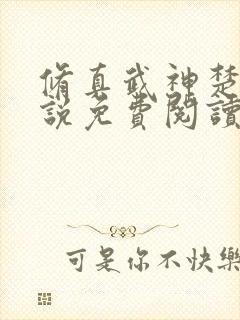 脩真武神楚
說免費閱讀
可是你不快樂